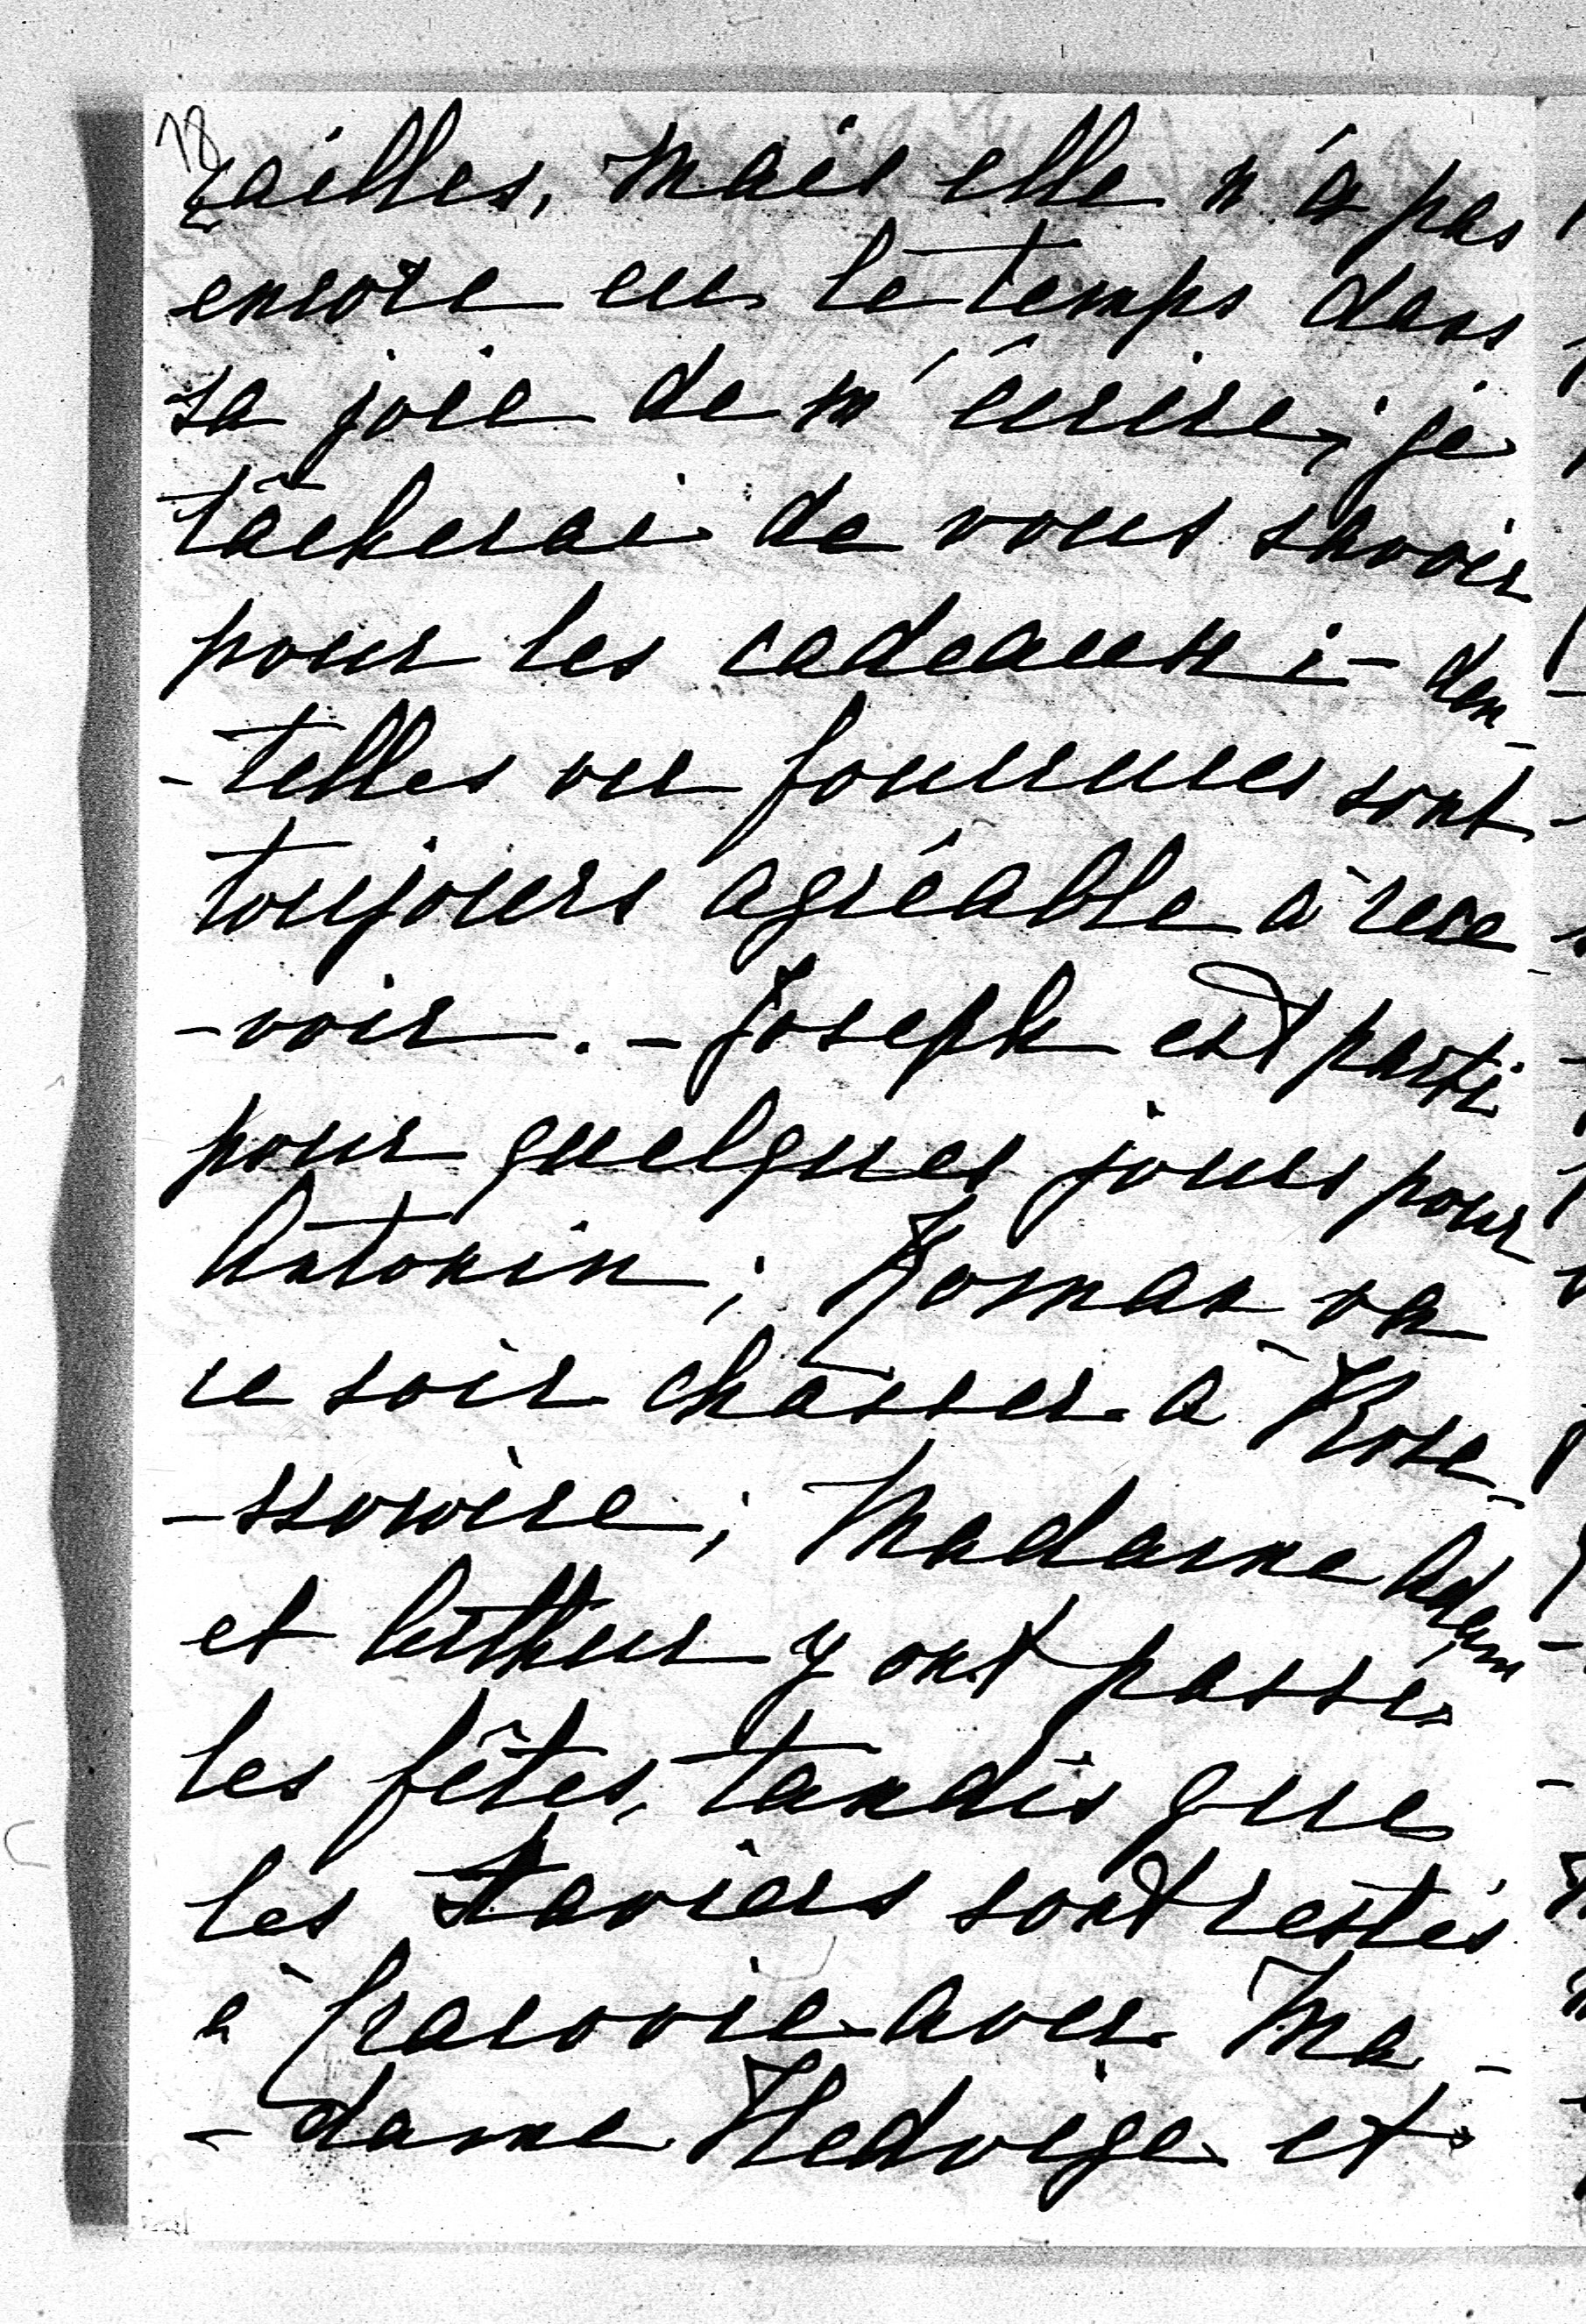 18
çailles, mais elle n'a pas
encore eu le temps dans
sa joie de m'écrire; je
tâcherai de vous savoir
pour les cadeaux; - den-
-telles ou fourrures sont
toujours agréable à rece-
-voir. - Joseph est parti
pour quelques jours pour
Antonin; Roman va
ce soir chasser à Kose-
-ssowice; Madame Adam
et Arthur y ont passé
les fêtes, tandis que
les Xaviers sont restés
à Cracovie avec Ma-
-dame Hedvige et